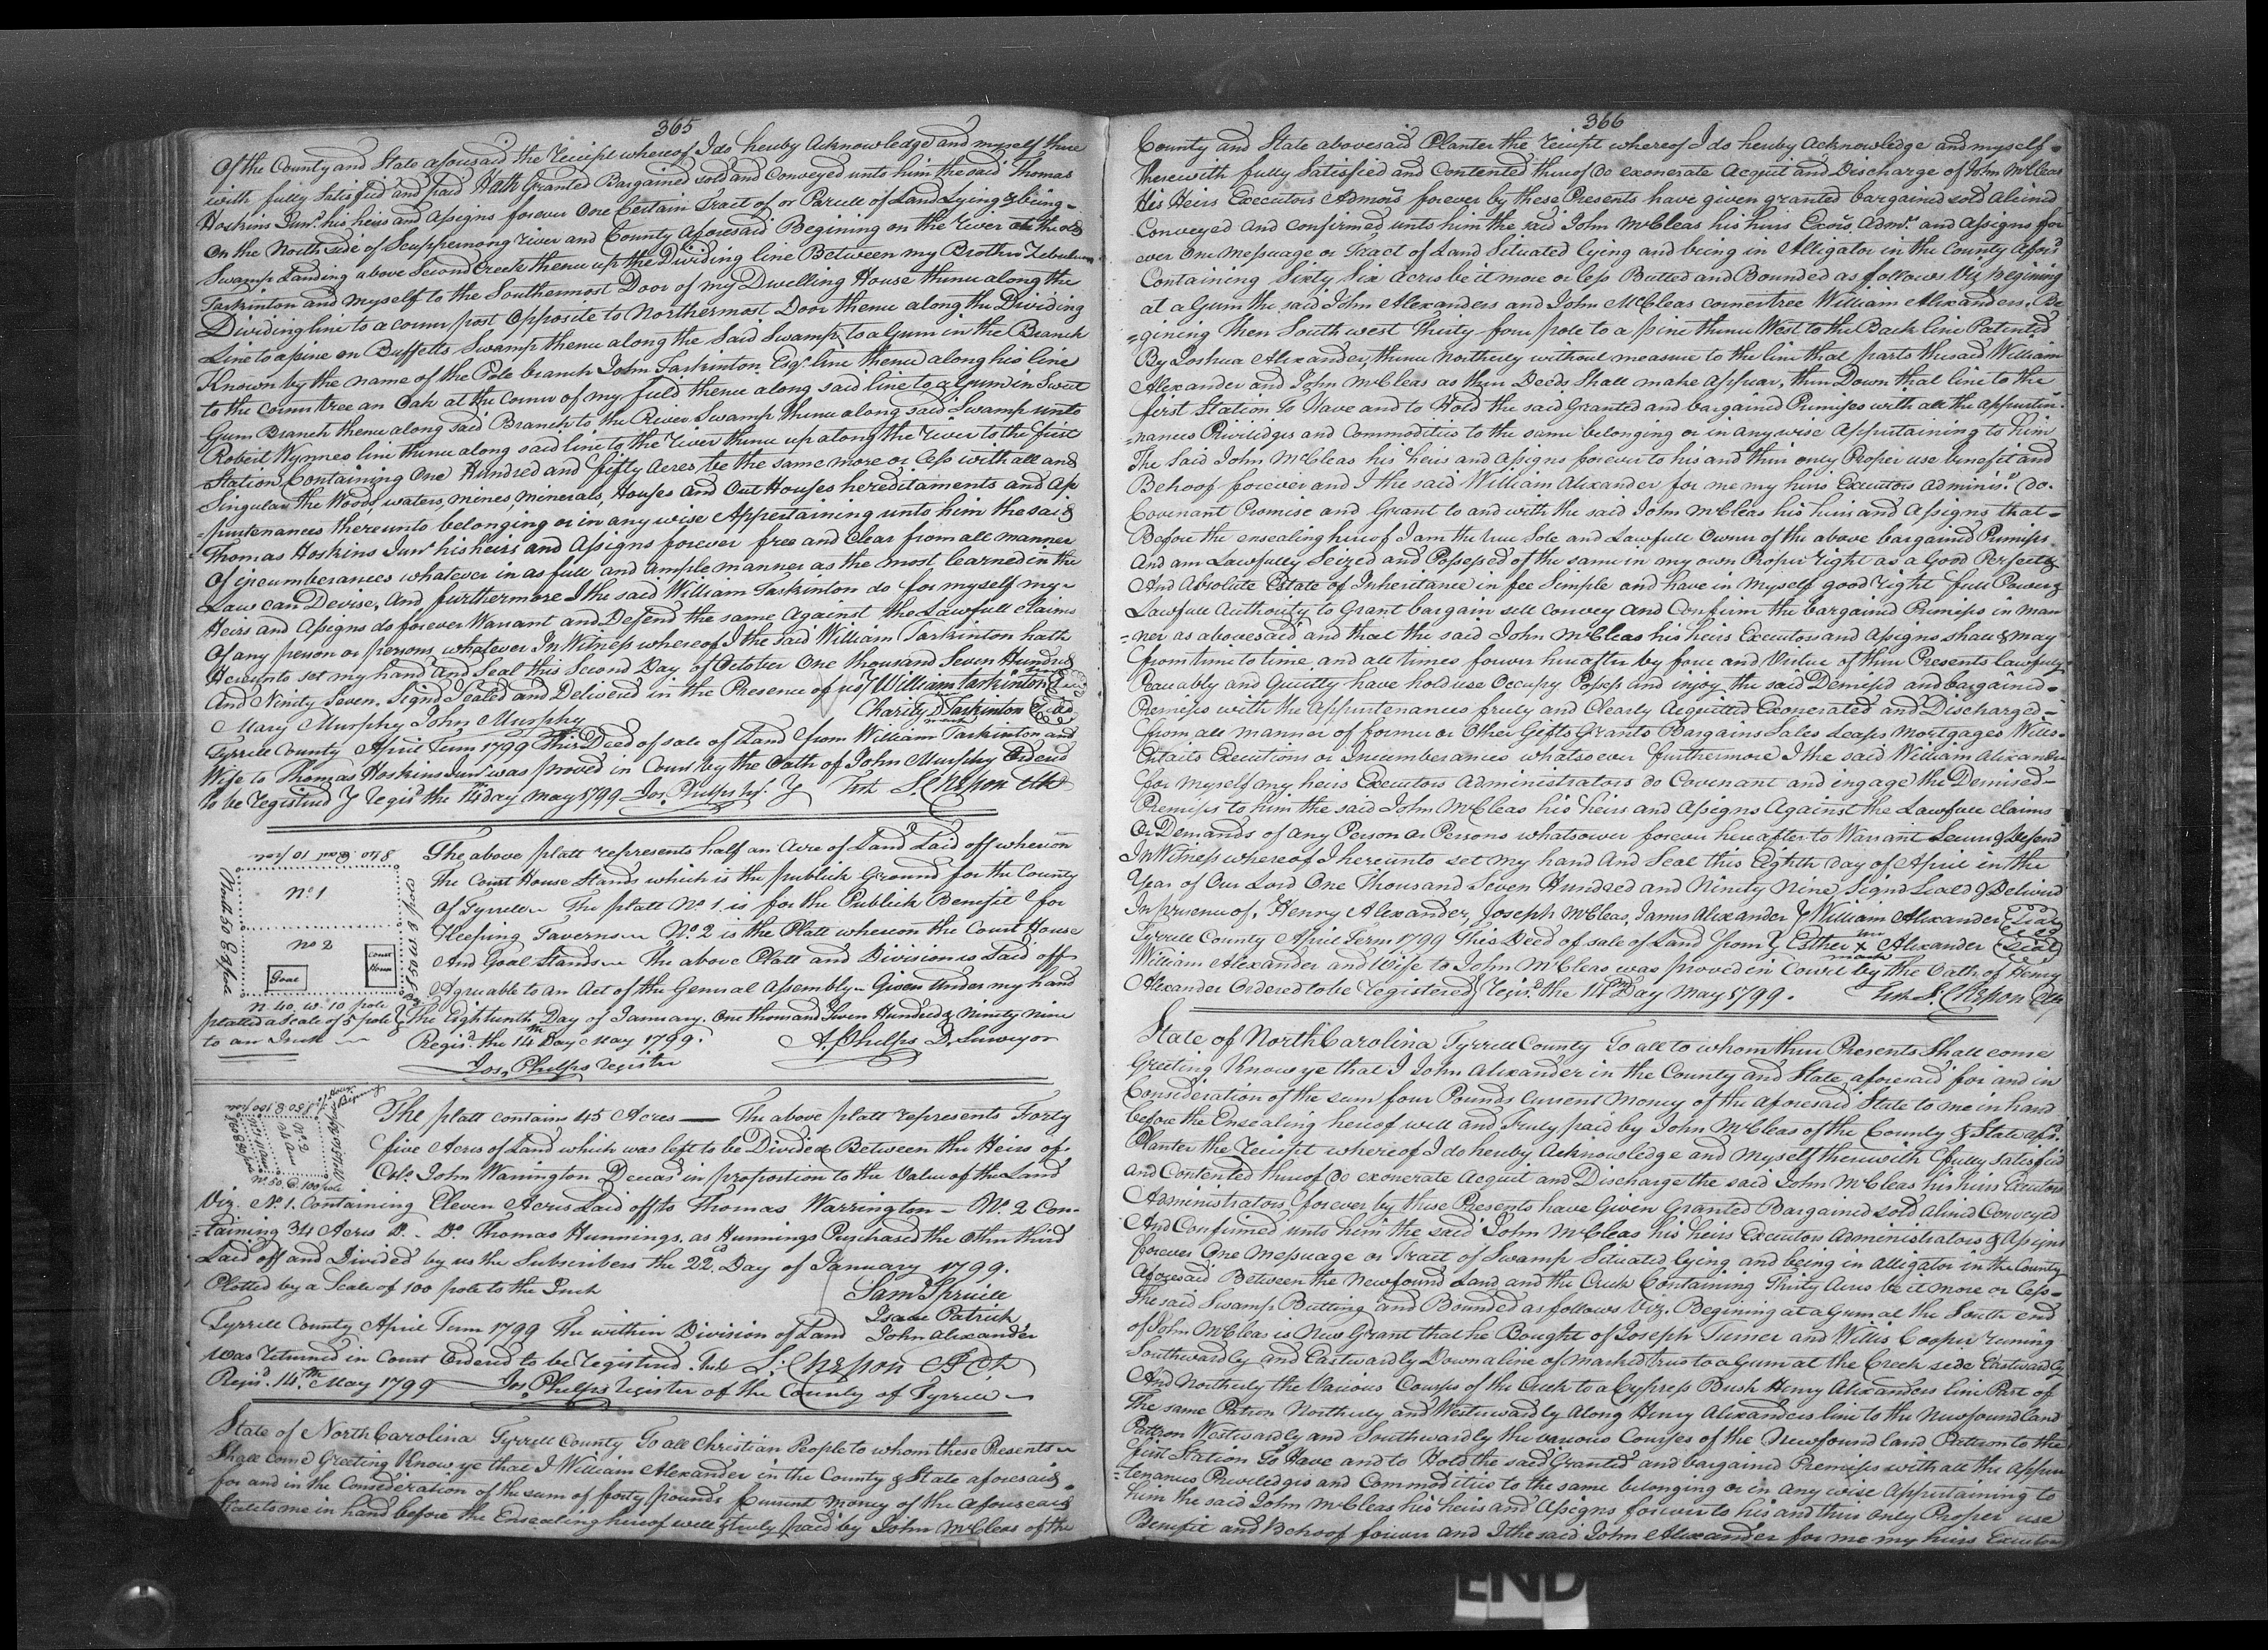 365
Of the County and State aforesaid the Receipt whereof I do hereby Acknowledge and myself there
with fully Satisfied and paid Hath Granted Bargained sold and Conveyed unto him the said Thomas
Hoskins Junr. his heirs and Assigns forever One Certain Tract of or Parcell of Land Lying & being
On the North side of Scuppernong River and County Aforesaid Begining on the River at the old
Swamp Landing above Second Creek thence up the Dividing line Between my Brother Zebulun
Tarkinton and myself to the Southermost Door of my Dwelling House thence along the
Dividing line to a corner post Opposite to Northermost Door thence along the Dividing
Line to a pine on Buffetts Swamp thence along the Said Swamp to a Gum in the Branch
Known by the name of the Pole branch John Tarkinton Esqr. line thence along his line
to the corner tree an Oak at the Corner of my field thence along said line to a Gum in Sweet
Gum Branch thence along said Branch to the River Swamp thence along said Swamp unto
Robert Wynnes line thence along said line to the River thence up along the River to the first
Station, Containing One Hundred and fifty Acres be the same more or less with all and
Singular the Woods, waters, mines, Minerals, Houses and Out Houses hereditaments and Ap
=purtenances thereunto belonging or in any wise Appertaining unto him the said
Thomas Hoskins Junr his heirs and Assigns forever free and Clear from all manner
Of incumberances whatever in as full and ample manner as the most learned in the
Law can Devise, And furthermore I the said William Tarkinton do for myself my
Heirs and Assigns do forever Warrant and Defend the same Against the Lawfull claims
Of any person or persons whatever In Witness whereof I the said William Tarkinton hath
Hereunto set my hand And Seal this Second Day of October One thousand Seven Hundred
And Ninity Seven. Signd Sealed and Deliverd in the Presence of us William Tarkinton Seal
Mary Murphy John Murphy Charity D Tarkinton Seal
mark
Tyrrell County April Term 1799 This Deed of sale of Land from William Tarkinton and
Wife to Thomas Hoskins Junr was proved in Court by the Oath of John Murphy Ordered
to be Registered Regisd the 14th day May 1799 Jos. Phelps Test S Chesson Clk
840 East 10 pole
No. 1
no 2
Court House
Goal
North 50 E 8 pole
S 50 W 8 pole
N 40 W. 10 pole
platted a Scale of 5 pole
to an Inch
The above platt represents half an Acre of Land Laid off whereon
The Court House Stands which is the publick Ground for the County
Of Tyrrell The platt No. 1 is for the Publick Benefit for
Keeping Taverns No. 2 is the Platt whereon the Court House
And Goal Stands The above Platt and Division is Laid off
Agreeable to an Act of the General Assembly Given Under my hand
The Eighteenth Day of January. One thousand Seven Hundred & Ninety nine
Regisd. the 14th Day May 1799. A. Phelps D. Surveyor
Jos. Phelps Register
The platt contains 45 Acres — The above platt represents Forty
five Acres of Land which was left to be Divided Between the Heirs of
Colo. John Warrington Decead in proportion to the Value of the Land
No. 50 W. 100 pole
Viz. No. 1. Containing Eleven Acres Laid off to Thomas Warrington — No. 2 Con-
-taining 34 Acres Do. Thomas Hunnings, as Hunnings Purchased the Other third
Laid off and Divided by us the Subscribers the 22d Day of January 1799.
Plotted by a Scale of 100 pole to the Inch
Sam Spruill
Isaac Patrick
John Alexander
Tyrrell County April Term 1799 The within Division of Land
was returned in Court Ordered to be registered. Test S. Chesson Clk
Regisd. 14th May 1799 Jos. Phelps Register of the County of Tyrrell
State of North Carolina Tyrrell County To all Christian People to whom these Presents
Shall come Greeting Know ye that I William Alexander in the County & State aforesaid
for and in the Consideration of the sum of forty pounds Current money of the aforesaid
State to me in hand before the Ensealing hereof well & truly paid by John McCleas of the
366
County and State abovesaid Planter the receipt whereof I do hereby Acknowledge and myself
therewith fully Satisfied and Contented thereof Do exonerate Acquit and Discharge of John McCleas
His Heirs Executors Admors forever by these Presents have given granted bargained sold aliened
Conveyed and confirmed unto him the said John McCleas his heirs Exors. Admrs. and Assigns for
ever One Messuage or Tract of Land Situated lying and being in Alligator in the County Aforsd
Containing Sixty Six Acres be it more or less Butted and Bounded as follows Viz Begining
at a Gum the said John Alexanders and John McCleas cornertree William Alexanders, Be
=gining then South west Thirty four pole to a pine thence West to the Back line Patented
By Joshua Alexander, thence Northerly without measure to the line that parts the said William
Alexander and John McCleas as their Deeds Shall make appear, then Down that line to the
first Station To Have and to Hold the said Granted and bargained Premises with all the Appurtin
=nances Priviledges and Commodities to the same belonging or in any wise Appertaining to him
The Said John McCleas his heirs and Assigns forever to his and their only Proper use benefit and
Behoof forever and I the said William Alexander for me my heirs Executors Adminisr. Do.
Covenant Promise and Grant to and with the said John McCleas his heirs and Assigns that
Before the ensealing hereof I am the true Sole and Lawfull Owner of the above bargained Premises
And am Lawfully Seized and Possessed of the same in my own Proper right as a Good Perfect &
And Absolute Estate of Inheritance in fee Simple and have in Myself good right full Power &
Lawfull Authority to Grant bargain sell convey and Confirm the bargained Premises in man
=ner as abovesaid and that the said John McCleas his heirs Executors and Assigns shall & may
from time to time, and all times forever hereafter by force and Virtue of these Presents lawfully
Peaceably and Quietly have hold use Occupy Possess and injoy the said Demised and bargained
Premises with the Appurtenances freely and Clearly Acquitted Exonerated and Discharged
from all manner of former or Other Gifts Grants Bargains Sales Leases Mortgages Wills
Entails Executions or Incumberances whatsoever furthermore I the said William Alexander
for myself my heirs Executors Administrators do Covenant and ingage the Demised
Premises to him the said John McCleas his heirs and Assigns Against the Lawfull claims
Or Demands of any Person or Persons whatsoever forever hereafter to Warrant Secure & Defend
In Witness whereof I hereunto set my hand And Seal this Eighth day of April in the
Year of Our Lord One Thousand Seven Hundred and Ninety Nine Signd Seald & Deliverd
In presence of, Henry Alexander, Joseph McCleas, James Alexander William Alexander Seal
Tyrrell County April Term 1799 This Deed of sale of Land from Esther her x mark Alexander Seal
William Alexander and Wife to John McCleas was proved in Court by the Oath of Henry
Alexander Ordered to be Registered Regisd. the 14th Day May 1799. Test S. Chesson Clk
State of North Carolina Tyrrell County To all to whom these Presents Shall come
Greeting Know ye that I John Alexander in the County and State aforesaid for and in
Consideration of the sum four Pounds Current Money of the aforesaid State to me in hand
before the Ensealing hereof well and Truly paid by John McCleas of the County & State afsd.
Planter the Receipt whereof I do hereby Acknowledge and Myself therewith fully Satisfied
and Contented thereof Do exonerate Acquit and Discharge the said John McCleas his heirs Executors
Administrators forever by these Presents have Given Granted Bargained sold aliend Conveyed
And Confirmed unto him the said John McCleas his heirs Executors Administrators & Assigns
forever One Messuage or Tract of Swamp Situated lying and being in Alligator in the County
Aforesaid Between the Newfound Land, and the Creek Containing Thirty Acres be it more or less
The said Swamp Butting and Bounded as follows Viz. Begining at a Gum at the South end
of John McCleas is New Grant that he Bought of Joseph Turner and Willis Cooper runing
Southwardly and Eastwardly Down a line of marked trees to a Gum at the Creek side Eastwardly
And Northerly the Various Courses of the Creek to a Cypress Bush Henry Alexanders line Part of
The same Patron Northerly and Westwardly along Henry Alexanders line to the Newfoundland
Pattron Westwardly and Southwardly the various Courses of the Newfound land Patron to the
first Station To Have and to Hold the said Granted and bargained Premises with all the Appur
=tenances Priviledges and Commodities to the same belonging or in any wise Appertaining to
him the said John McCleas his heirs and Assigns forever to his and their only Proper use
Benefit and Behoof forever and I the said John Alexander for me my heirs Executors
END